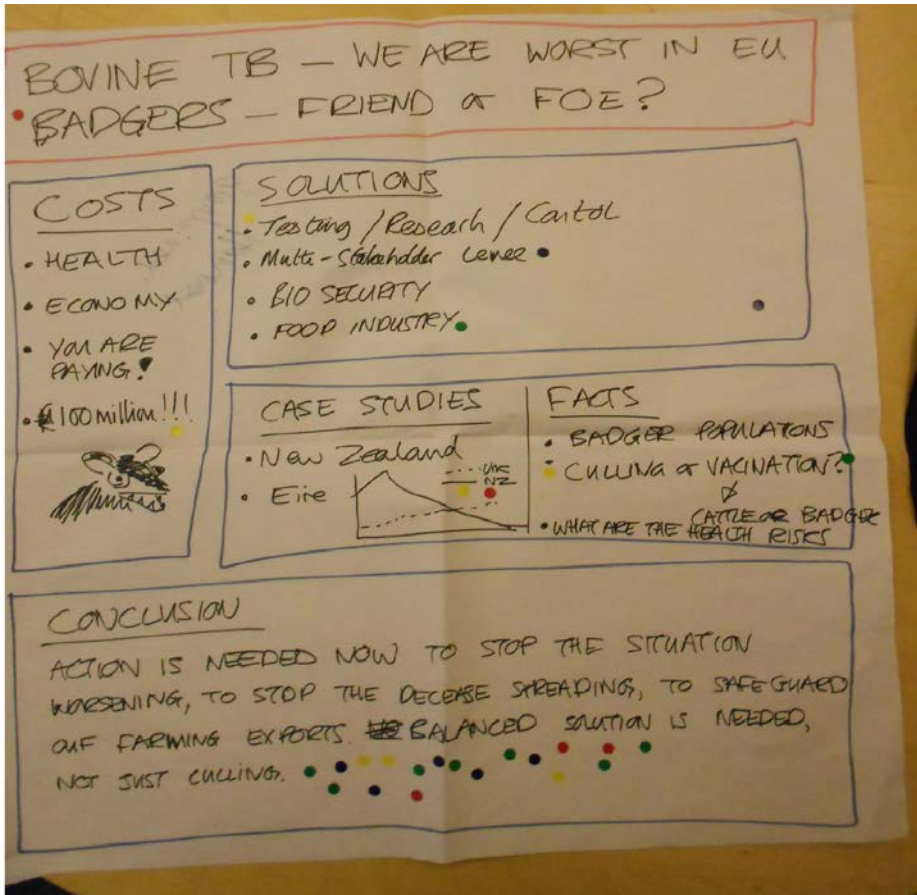 BOVINE TB — WE ARE WORST IN EU
BADGERS — FRIEND or FOE?
COSTS
• HEALTH
• ECONOMY
• YOU ARE
PAYING!
• £100 million!!!
SOLUTIONS
• Testing / Research / Control
• Multi-Stakeholder
• BIO SECURITY
• FOOD INDUSTRY
CASE STUDIES
• New Zealand
• Eire
UK
NZ
FACTS
• BADGER POPULATIONS
• CULLING or VACINATION?
CATTLE OR BADGER
• WHAT ARE THE HEALTH RISKS
CONCLUSION
ACTION IS NEEDED NOW TO STOP THE SITUATION
WORSENING, TO STOP THE DECEASE SPREADING, TO SAFEGUARD
OUR FARMING EXPORTS. BALANCED SOLUTION IS NEEDED,
NOT JUST CULLING.